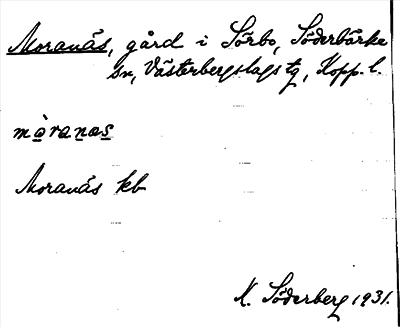 Moranäs, gård i Sörbo, Söderbärke
sn, Västerbergslags tg, Kopp. l.
mòranəs
Moranäs kb
N. Söderberg 1931.